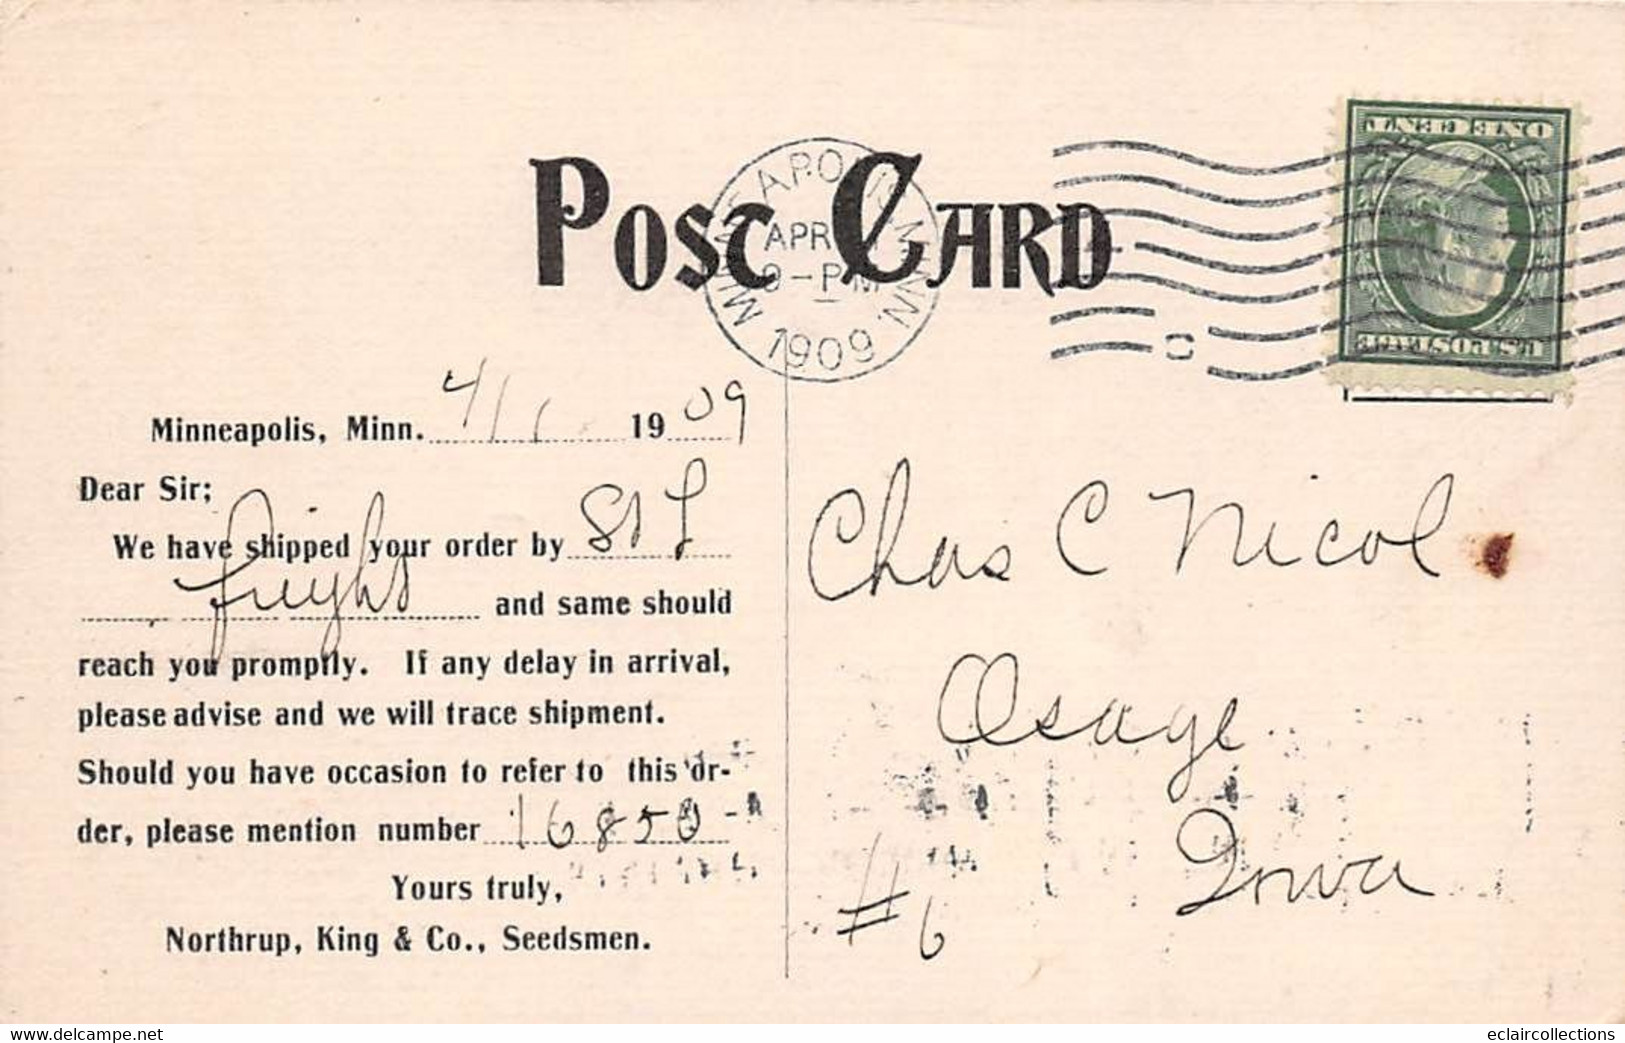 POST CARD
MINNEAPOLIS, MINN.
APR
9-PM
1909
ONE CENT
U.S. POSTAGE
Minneapolis, Minn. 4/1 1909
Dear Sir;
We have shipped your order by St L
freight and same should
reach you promptly. If any delay in arrival,
please advise and we will trace shipment.
Should you have occasion to refer to this or-
der, please mention number 16850
Yours truly,
Northrup, King & Co., Seedsmen.
Chas C Nicol
Osage
Iowa
#6
www.delcampe.net
eclaircollections